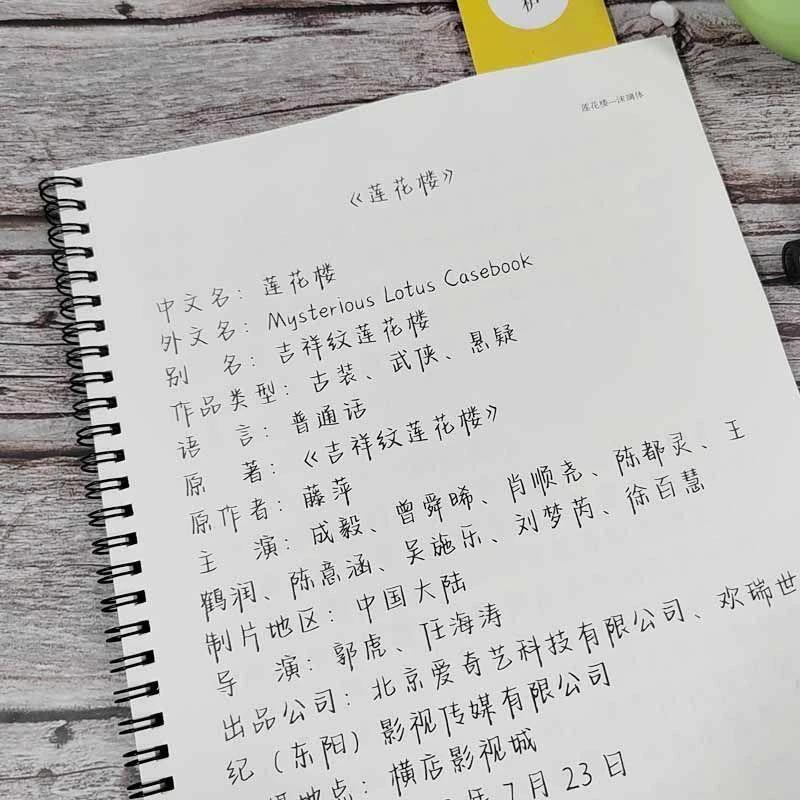 莲花楼—沫璃体
《莲花楼》
中文名：莲花楼
外文名：Mysterious Lotus Casebook
别 名：吉祥纹莲花楼
作品类型：古装、武侠、悬疑
语 言：普通话
原 著：《吉祥纹莲花楼》
原作者：藤萍
主 演：成毅、曾舜晞、肖顺尧、陈都灵、王
鹤润、陈意涵、吴施乐、刘梦芮、徐百慧
制片地区：中国大陆
导 演：郭虎、任海涛
出品公司：北京爱奇艺科技有限公司、欢瑞世
纪（东阳）影视传媒有限公司
地点：横店影视城
年7月23日